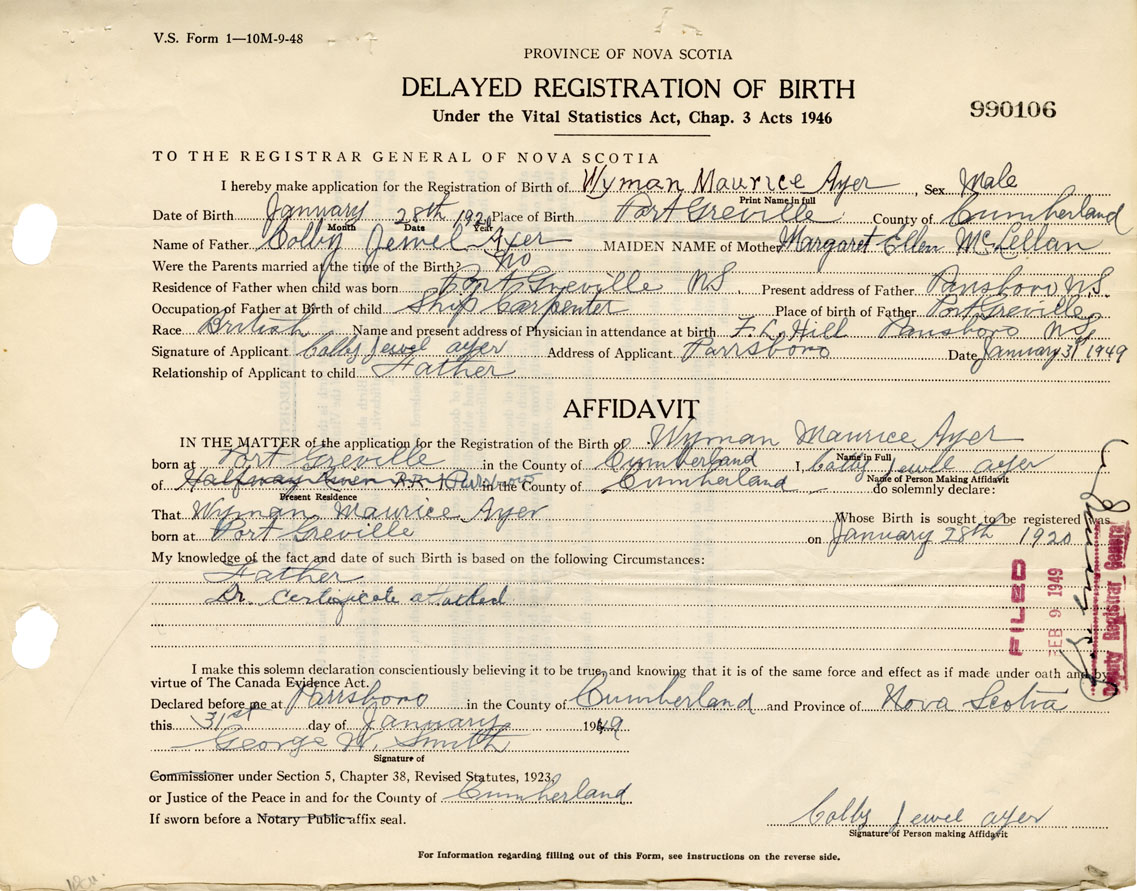 V.S. Form 1—10M-9-48
PROVINCE OF NOVA SCOTIA
DELAYED REGISTRATION OF BIRTH
990106
Under the Vital Statistics Act, Chap. 3 Acts 1946
TO THE REGISTRAR GENERAL OF NOVA SCOTIA
I hereby make application for the Registration of Birth of Wyman Maurice Ayer, Sex Male
Print Name in full
Date of Birth January 28th 1920 Place of Birth Port Greville County of Cumberland
Month Date Year
Name of Father Colby Jewel Ayer MAIDEN NAME of Mother Margaret Ellen McLellan
Were the Parents married at the time of the Birth? No
Residence of Father when child was born Port Greville NS Present address of Father Parrsboro N.S.
Occupation of Father at Birth of child Ship Carpenter Place of birth of Father Port Greville
Race British Name and present address of Physician in attendance at birth F. L. Hill Parrsboro NS
Signature of Applicant Colby Jewel ayer Address of Applicant Parrsboro Date January 31 1949
Relationship of Applicant to child Father
AFFIDAVIT
IN THE MATTER of the application for the Registration of the Birth of Wyman Maurice Ayer
Name in Full
born at Port Greville in the County of Cumberland I, Colby Jewel ayer
Name of Person Making Affidavit
of Halfway River R.R. Parrsboro in the County of Cumberland do solemnly declare:
Present Residence
That Wyman Maurice Ayer Whose Birth is sought to be registered was
born at Port Greville on January 28th 1920
My knowledge of the fact and date of such Birth is based on the following Circumstances:
Father
Dr. Certificate attatted
FILED
FEB 9 1949
Deputy Registrar General
I make this solemn declaration conscientiously believing it to be true, and knowing that it is of the same force and effect as if made under oath and by
virtue of The Canada Evidence Act.
Declared before me at Parrsboro in the County of Cumberland and Province of Nova Scotia
this 31st day of January 1949
George W. Smith
Signature of
Commissioner under Section 5, Chapter 38, Revised Statutes, 1923,
or Justice of the Peace in and for the County of Cumberland
If sworn before a Notary Public affix seal.
Colby Jewel ayer
Signature of Person making Affidavit
For Information regarding filling out of this Form, see instructions on the reverse side.